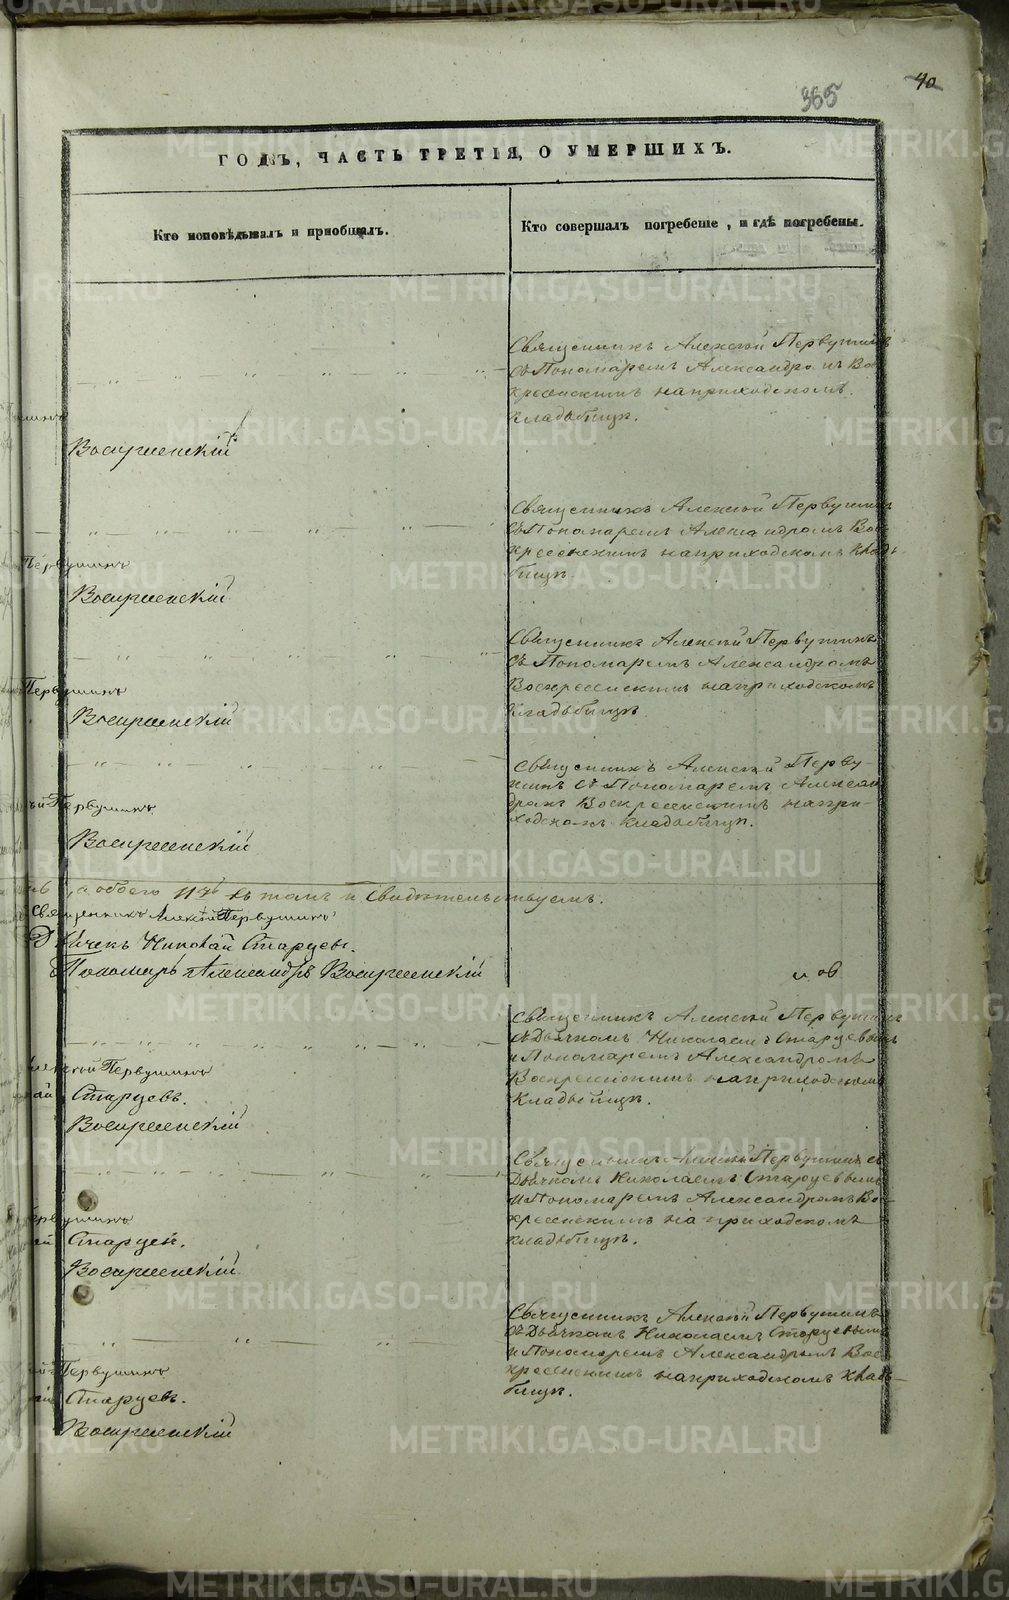 40
365
ГОДЪ, ЧАСТЬ ТРЕТІЯ, О УМЕРШИХЪ.
Кто исповѣдывалъ и приобщалъ.
Кто совершалъ погребеніе, и гдѣ погребены.
Священникъ Алексѣй Первушинъ
съ Пономаремъ Александромъ Вос-
кресенскимъ на приходскомъ
кладбищѣ.
Воскресенскій
Священникъ Алексѣй Первушинъ
съ Пономаремъ Александромъ Вос-
кресенскимъ на приходскомъ клад-
бищѣ.
Первушинъ
Воскресенскій
Священникъ Алексѣй Первушинъ
съ Пономаремъ Александромъ
Воскресенскимъ на приходскомъ
кладбищѣ
Первушинъ
Воскресенскій
Священникъ Алексѣй Перву-
шинъ съ Пономаремъ Алексан-
дромъ Воскресенскимъ на при-
ходскомъ кладбищѣ.
Первушинъ
Воскресенскій
а обоего въ томъ и свидѣтельствуемъ.
Священникъ Алексѣй Первушинъ
Дьячекъ Николай Старцевъ.
Пономарь Александръ Воскресенскій
Священникъ Алексѣй Первушинъ
съ Дьячкомъ Николаемъ Старцевымъ
и Пономаремъ Александромъ
Воскресенскимъ на приходскомъ
кладбищѣ.
Первушинъ
Старцевъ.
Воскресенскій
Священникъ Алексѣй Первушинъ съ
Дьячкомъ Николаемъ Старцевымъ
и Пономаремъ Александромъ Вос-
кресенскимъ на приходскомъ
кладбищѣ.
Первушинъ
Старцевъ.
Воскресенскій
Священникъ Алексѣй Первушинъ
съ Дьячкомъ Николаемъ Старцевымъ
и Пономаремъ Александромъ Вос-
кресенскимъ на приходскомъ клад-
бищѣ.
Первушинъ
Старцевъ.
Воскресенскій
METRIKI.GASO-URAL.RU